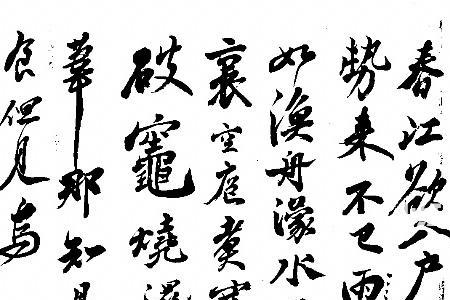 春江欲入戶
勢來不已雨
如漁舟濛水
裏空庖煮
破竈燒
葦那知
食但見烏